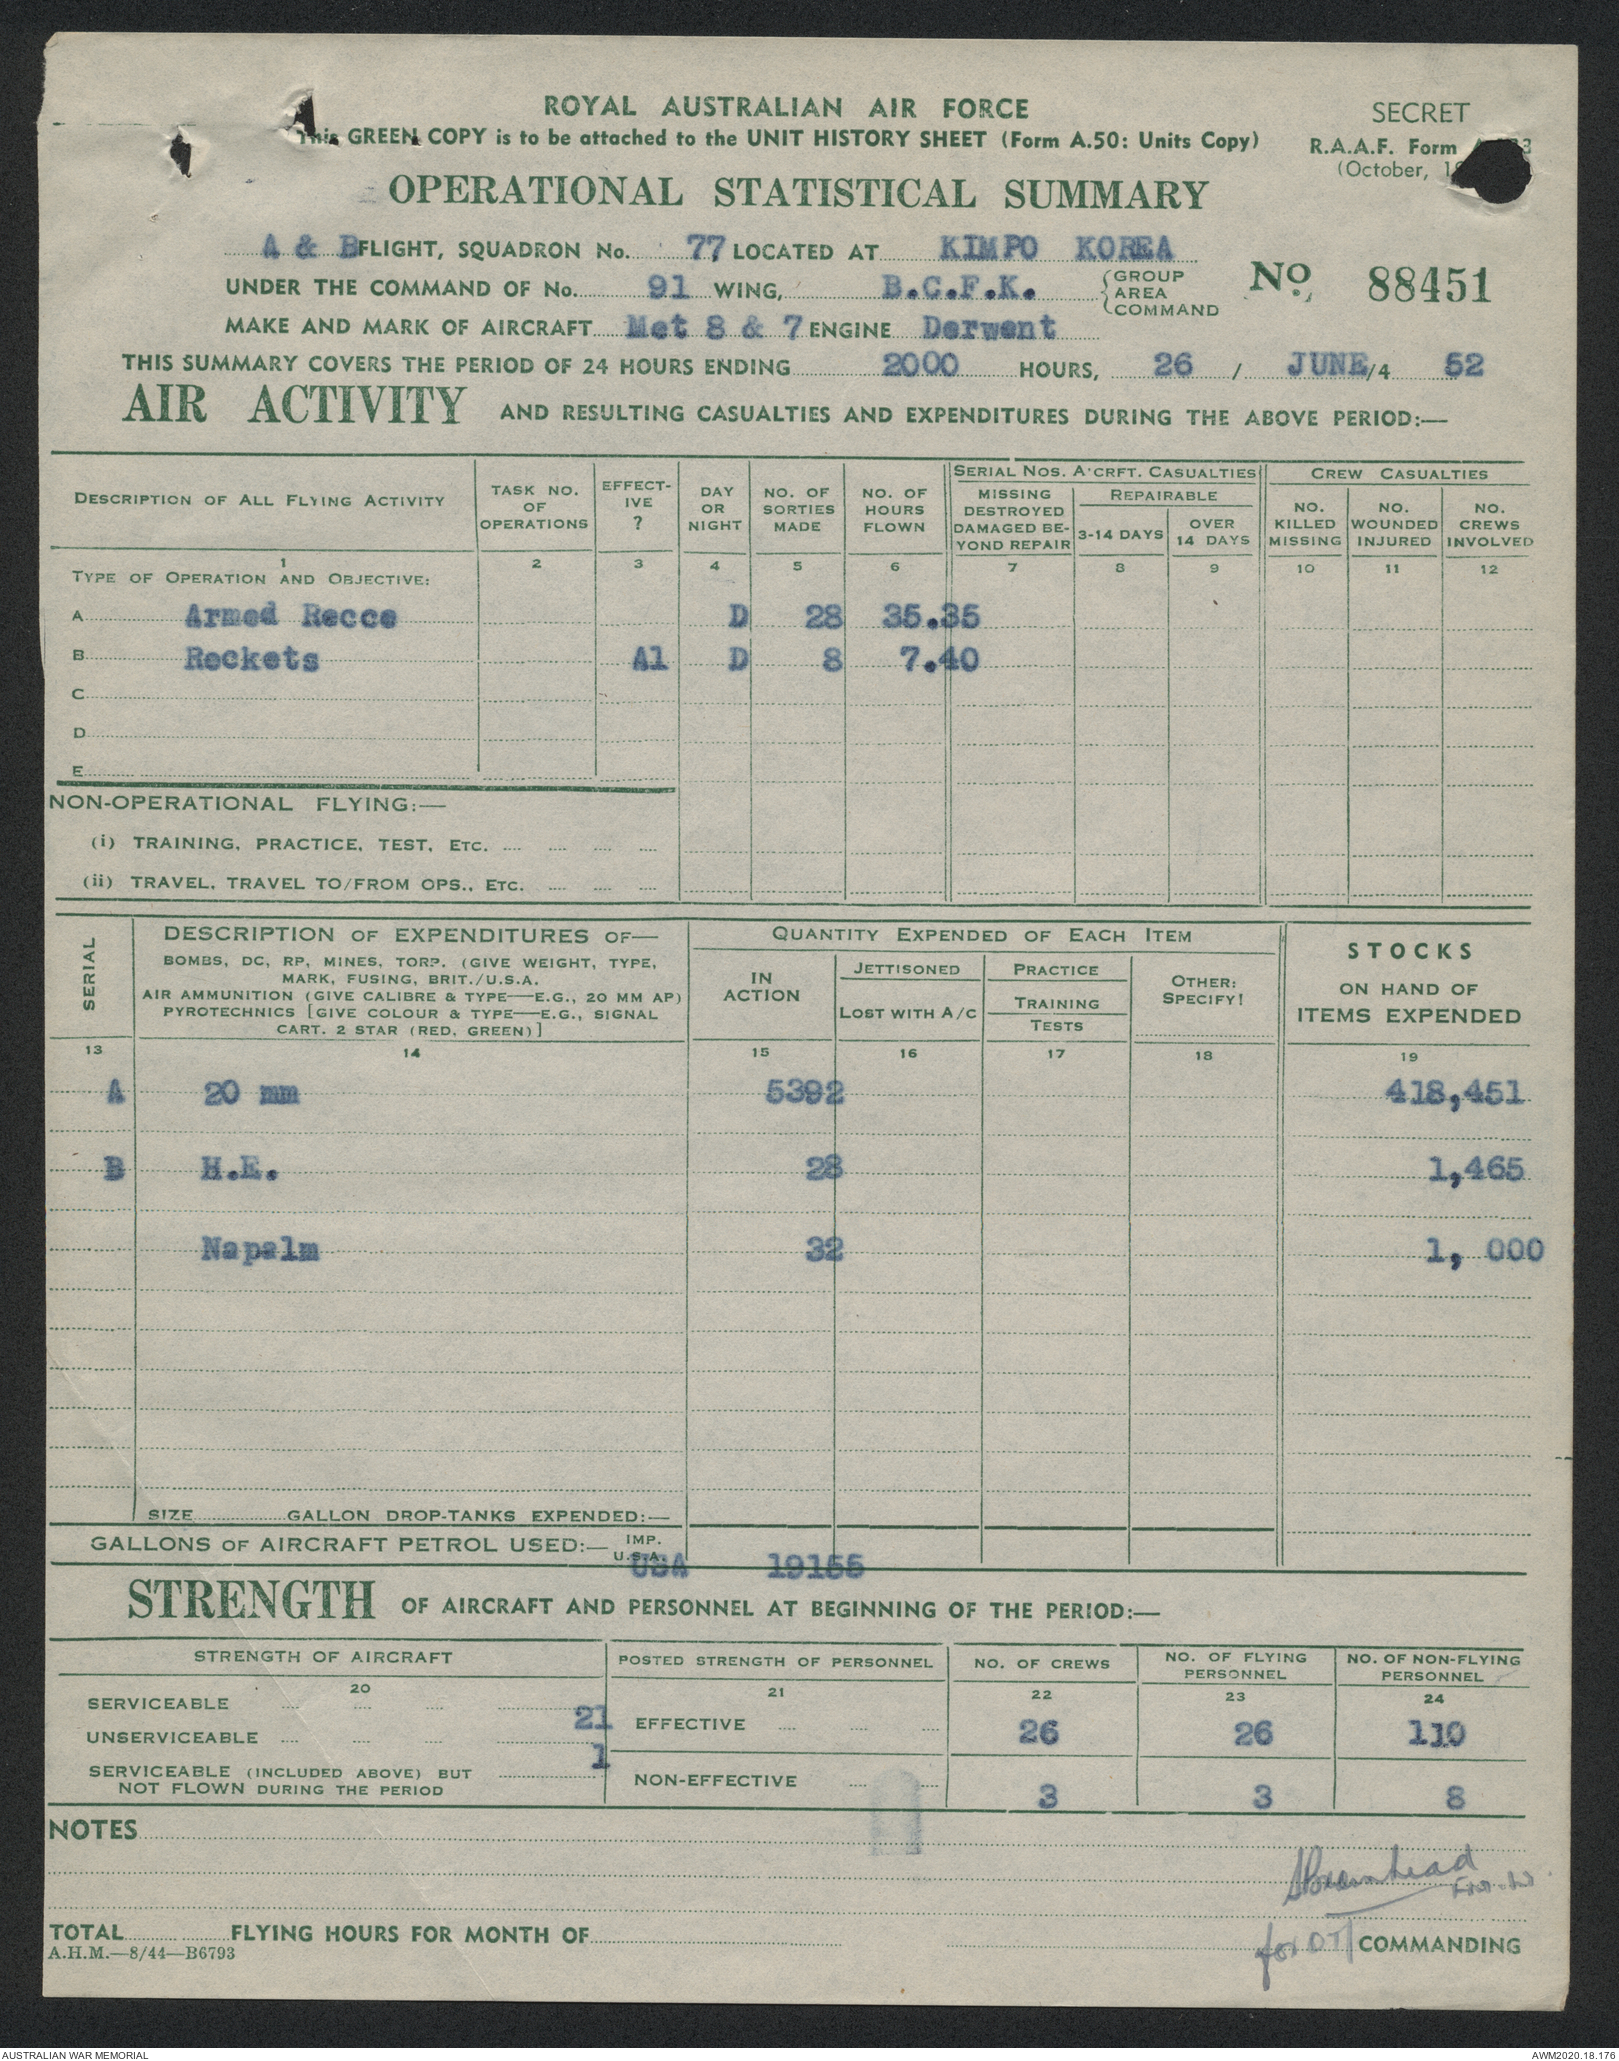 ROYAL AUSTRALIAN AIR FORCE
SECRET
This GREEN COPY is to be attached to the UNIT HISTORY SHEET (Form A.50: Units Copy)
R.A.A.F. Form
(October,
OPERATIONAL STATISTICAL SUMMARY
A & B FLIGHT, SQUADRON No. 77 LOCATED AT KIMPO KOREA
UNDER THE COMMAND OF No. 91 WING, B.C.F.K. GROUP AREA COMMAND
No. 88451
MAKE AND MARK OF AIRCRAFT Met 8 & 7 ENGINE Derwent
THIS SUMMARY COVERS THE PERIOD OF 24 HOURS ENDING 2000 HOURS, 26 / JUNE/4 52
AIR ACTIVITY AND RESULTING CASUALTIES AND EXPENDITURES DURING THE ABOVE PERIOD:—
DESCRIPTION OF ALL FLYING ACTIVITY
TASK NO. OF OPERATIONS
EFFECT-IVE ?
DAY OR NIGHT
NO. OF SORTIES MADE
NO. OF HOURS FLOWN
SERIAL NOS. A'CRFT. CASUALTIES
MISSING DESTROYED DAMAGED BE-YOND REPAIR
REPAIRABLE
3-14 DAYS
OVER 14 DAYS
CREW CASUALTIES
NO. KILLED MISSING
NO. WOUNDED INJURED
NO. CREWS INVOLVED
1 2 3 4 5 6 7 8 9 10 11 12
TYPE OF OPERATION AND OBJECTIVE:
A Armed Recce D 28 35.35
B Rockets A1 D 8 7.40
C
D
E
NON-OPERATIONAL FLYING:—
(i) TRAINING, PRACTICE, TEST, ETC. .... .... .... ....
(ii) TRAVEL, TRAVEL TO/FROM OPS., ETC. .... .... ....
SERIAL
DESCRIPTION OF EXPENDITURES OF—
BOMBS, DC, RP, MINES, TORP. (GIVE WEIGHT, TYPE,
MARK, FUSING, BRIT./U.S.A.
AIR AMMUNITION (GIVE CALIBRE & TYPE—E.G., 20 MM AP)
PYROTECHNICS [GIVE COLOUR & TYPE—E.G., SIGNAL
CART. 2 STAR (RED, GREEN)]
QUANTITY EXPENDED OF EACH ITEM
IN ACTION
JETTISONED
LOST WITH A/C
PRACTICE
TRAINING
TESTS
OTHER:
SPECIFY!
STOCKS
ON HAND OF
ITEMS EXPENDED
13 14 15 16 17 18 19
A 20 mm 5392 418,451
B H.E. 28 1,465
Napalm 32 1, 000
SIZE GALLON DROP-TANKS EXPENDED:—
GALLONS OF AIRCRAFT PETROL USED:— IMP. U.S.A. USA 19155
STRENGTH OF AIRCRAFT AND PERSONNEL AT BEGINNING OF THE PERIOD:—
STRENGTH OF AIRCRAFT
POSTED STRENGTH OF PERSONNEL
NO. OF CREWS
NO. OF FLYING PERSONNEL
NO. OF NON-FLYING PERSONNEL
20 21 22 23 24
SERVICEABLE .... .... .... 21
EFFECTIVE .... .... .... 26 26 110
UNSERVICEABLE .... .... .... 1
SERVICEABLE (INCLUDED ABOVE) BUT
NOT FLOWN DURING THE PERIOD
NON-EFFECTIVE .... .... 3 3 8
NOTES
TOTAL FLYING HOURS FOR MONTH OF
for COMMANDING
A.H.M.—8/44—B6793
AUSTRALIAN WAR MEMORIAL
AWM2020.18.176